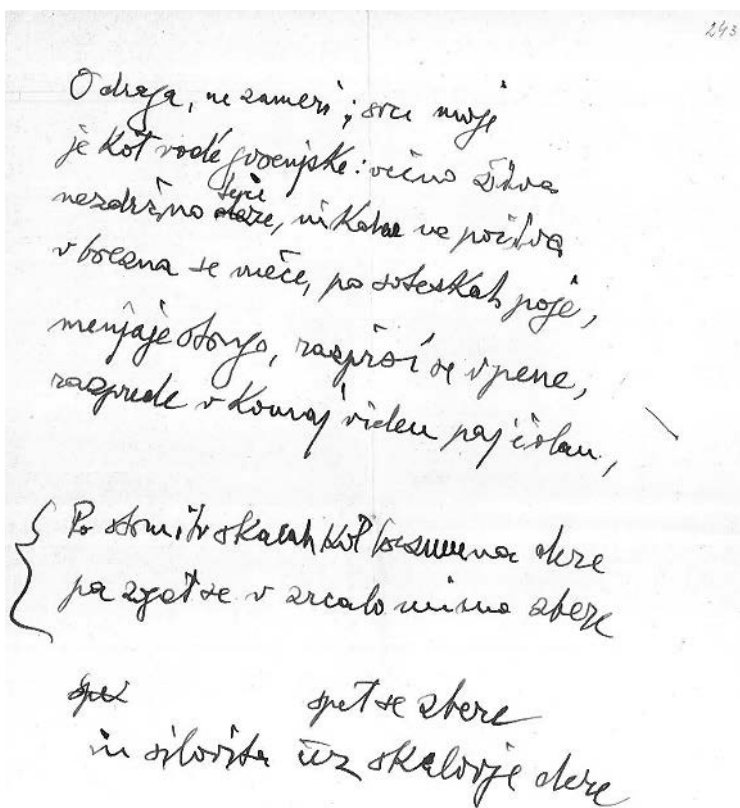 243
O draga, ne zameri; srce moje
je kot vode gorenjske: večno živa
nezdržno dere, teče nikdar ne počiva
v brezna se meče, po soteskah poje,
menjaje strugo, razprši se v pene,
razprede v komaj viden pajčolan,
Po strmih skalah kot brezumna dere
pa zopet se v zrcalo mirno zbere
spet
spet se zbere
in silovita čez skalovje dere